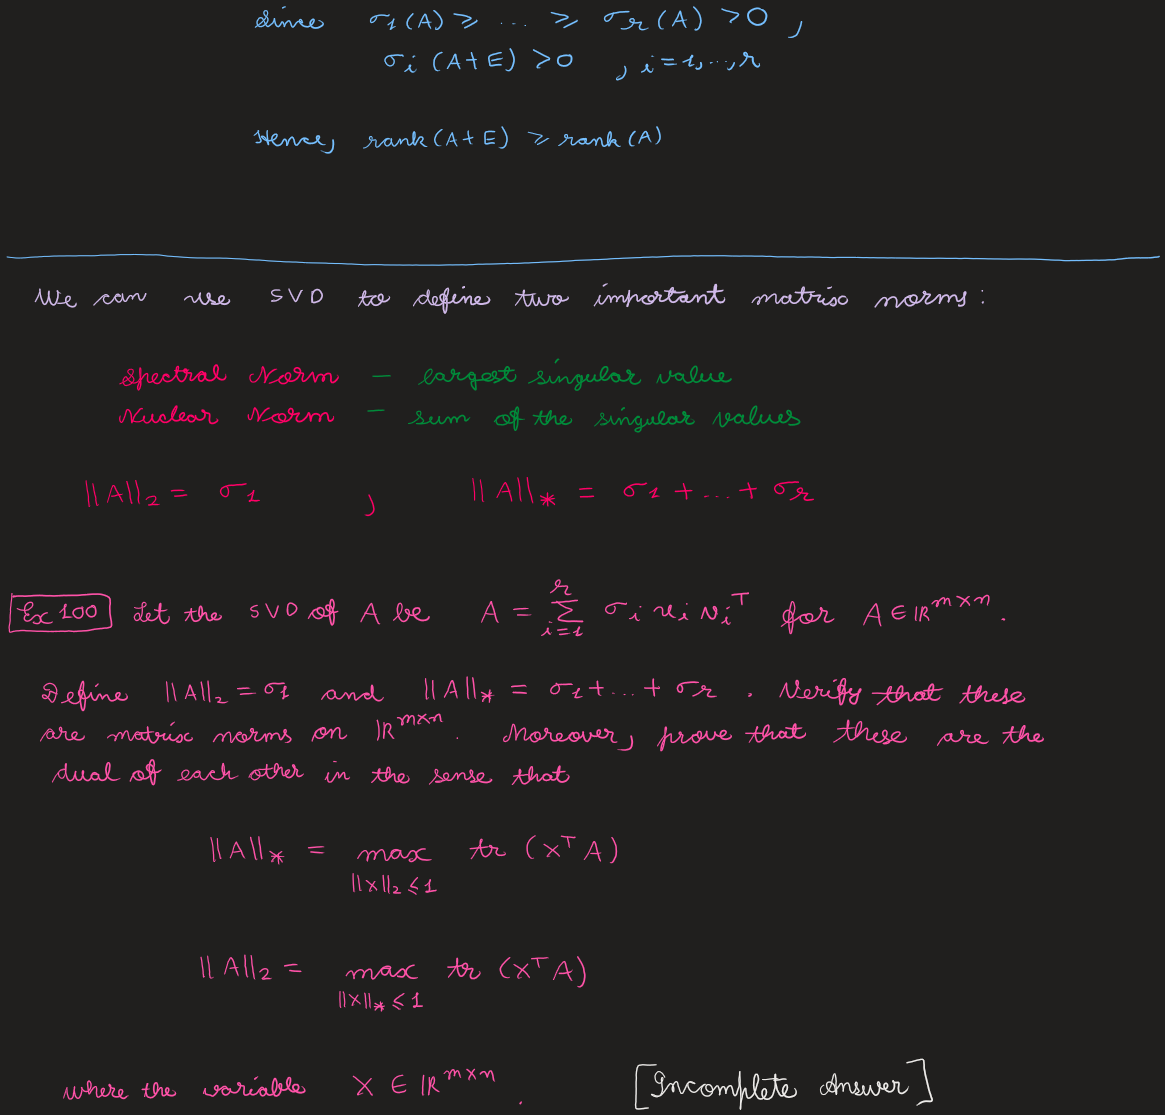 Since σ₁(A) ≥ ... ≥ σᵣ(A) > 0 ,
σᵢ(A+E) > 0 , i=1,...,r
Hence, rank(A+E) ≥ rank(A)
We can use SVD to define two important matrix norms :
Spectral Norm — largest singular value
Nuclear Norm — sum of the singular values
||A||₂ = σ₁ , ||A||_* = σ₁ + ... + σᵣ
Ex 100 Let the SVD of A be A = Σ_{i=1}^{r} σᵢ uᵢ vᵢᵀ for A ∈ ℝ^{m×n} .
Define ||A||₂ = σ₁ and ||A||_* = σ₁ + ... + σᵣ . Verify that these
are matrix norms on ℝ^{m×n} . Moreover, prove that these are the
dual of each other in the sense that
||A||_* = max_{||X||₂ ≤ 1} tr (XᵀA)
||A||₂ = max_{||X||_* ≤ 1} tr (XᵀA)
where the variable X ∈ ℝ^{m×n} . [Incomplete Answer]